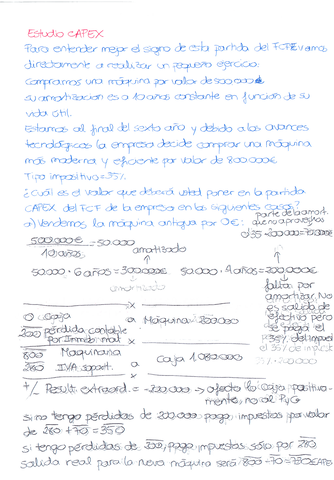 Estudio CAPEX
Para entender mejor el signo de esta partida del FCF vamos
directamente a realizar un pequeño ejercicio:
Compramos una máquina por valor de 500.000€
su amortización es a 10 años constante en función de su
vida útil.
Estamos al final del sexto año y debido a los avances
tecnológicos la empresa decide comprar una máquina
más moderna y eficiente por valor de 800.000€
Tipo impositivo = 35%
¿Cuál es el valor que deberá usted poner en la partida
CAPEX del FCF de la empresa en los siguientes casos?
a) Vendemos la máquina antigua por 0€:
parte de la amort.
0'35 · 200.000 = 70.000€
500.000€ = 50.000
10 años
amortizado
50.000 · 6 años = 300.000€ 50.000 · 4 años = 200.000€
amortizado
falta por
amortizar. No
es salida de
efectivo pero
35%
x
0 Caja
a Máquina 200.000
200 pérdida contable
por Inmob. mat
x
800 Maquinaria
280 IVA soport.
a Caja 1.080.000
x
+/- Result. extraord. = -200.000 → afecta la caja positiva-
mente, no al PyG
si no tengo pérdidas de 200.000 pago impuestos por valor
de 280 + 70 = 350
si tengo pérdidas de 200, pago impuestos sólo por 280
salida real para la nueva máquina será 800 - 70 = 730 CAPEX